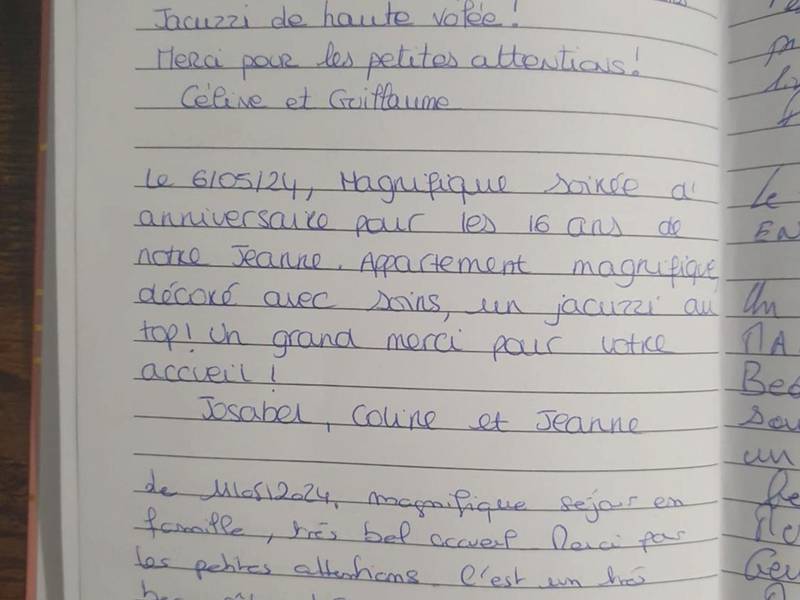 Jacuzzi de haute volée!
Merci pour les petites attentions!
Céline et Guillaume
Le 6/05/24, Magnifique soirée d'
anniversaire pour les 16 ans de
notre Jeanne. Appartement magnifique,
décoré avec soins, un jacuzzi au
top! Un grand merci pour votre
accueil!
Josabel, Coline et Jeanne
de 11/05/2024. magnifique sejour en
famille, très bel accueil Merci par
les petites attentions. C'est un très
Le
EN
Un
MA
Bee
sou
un